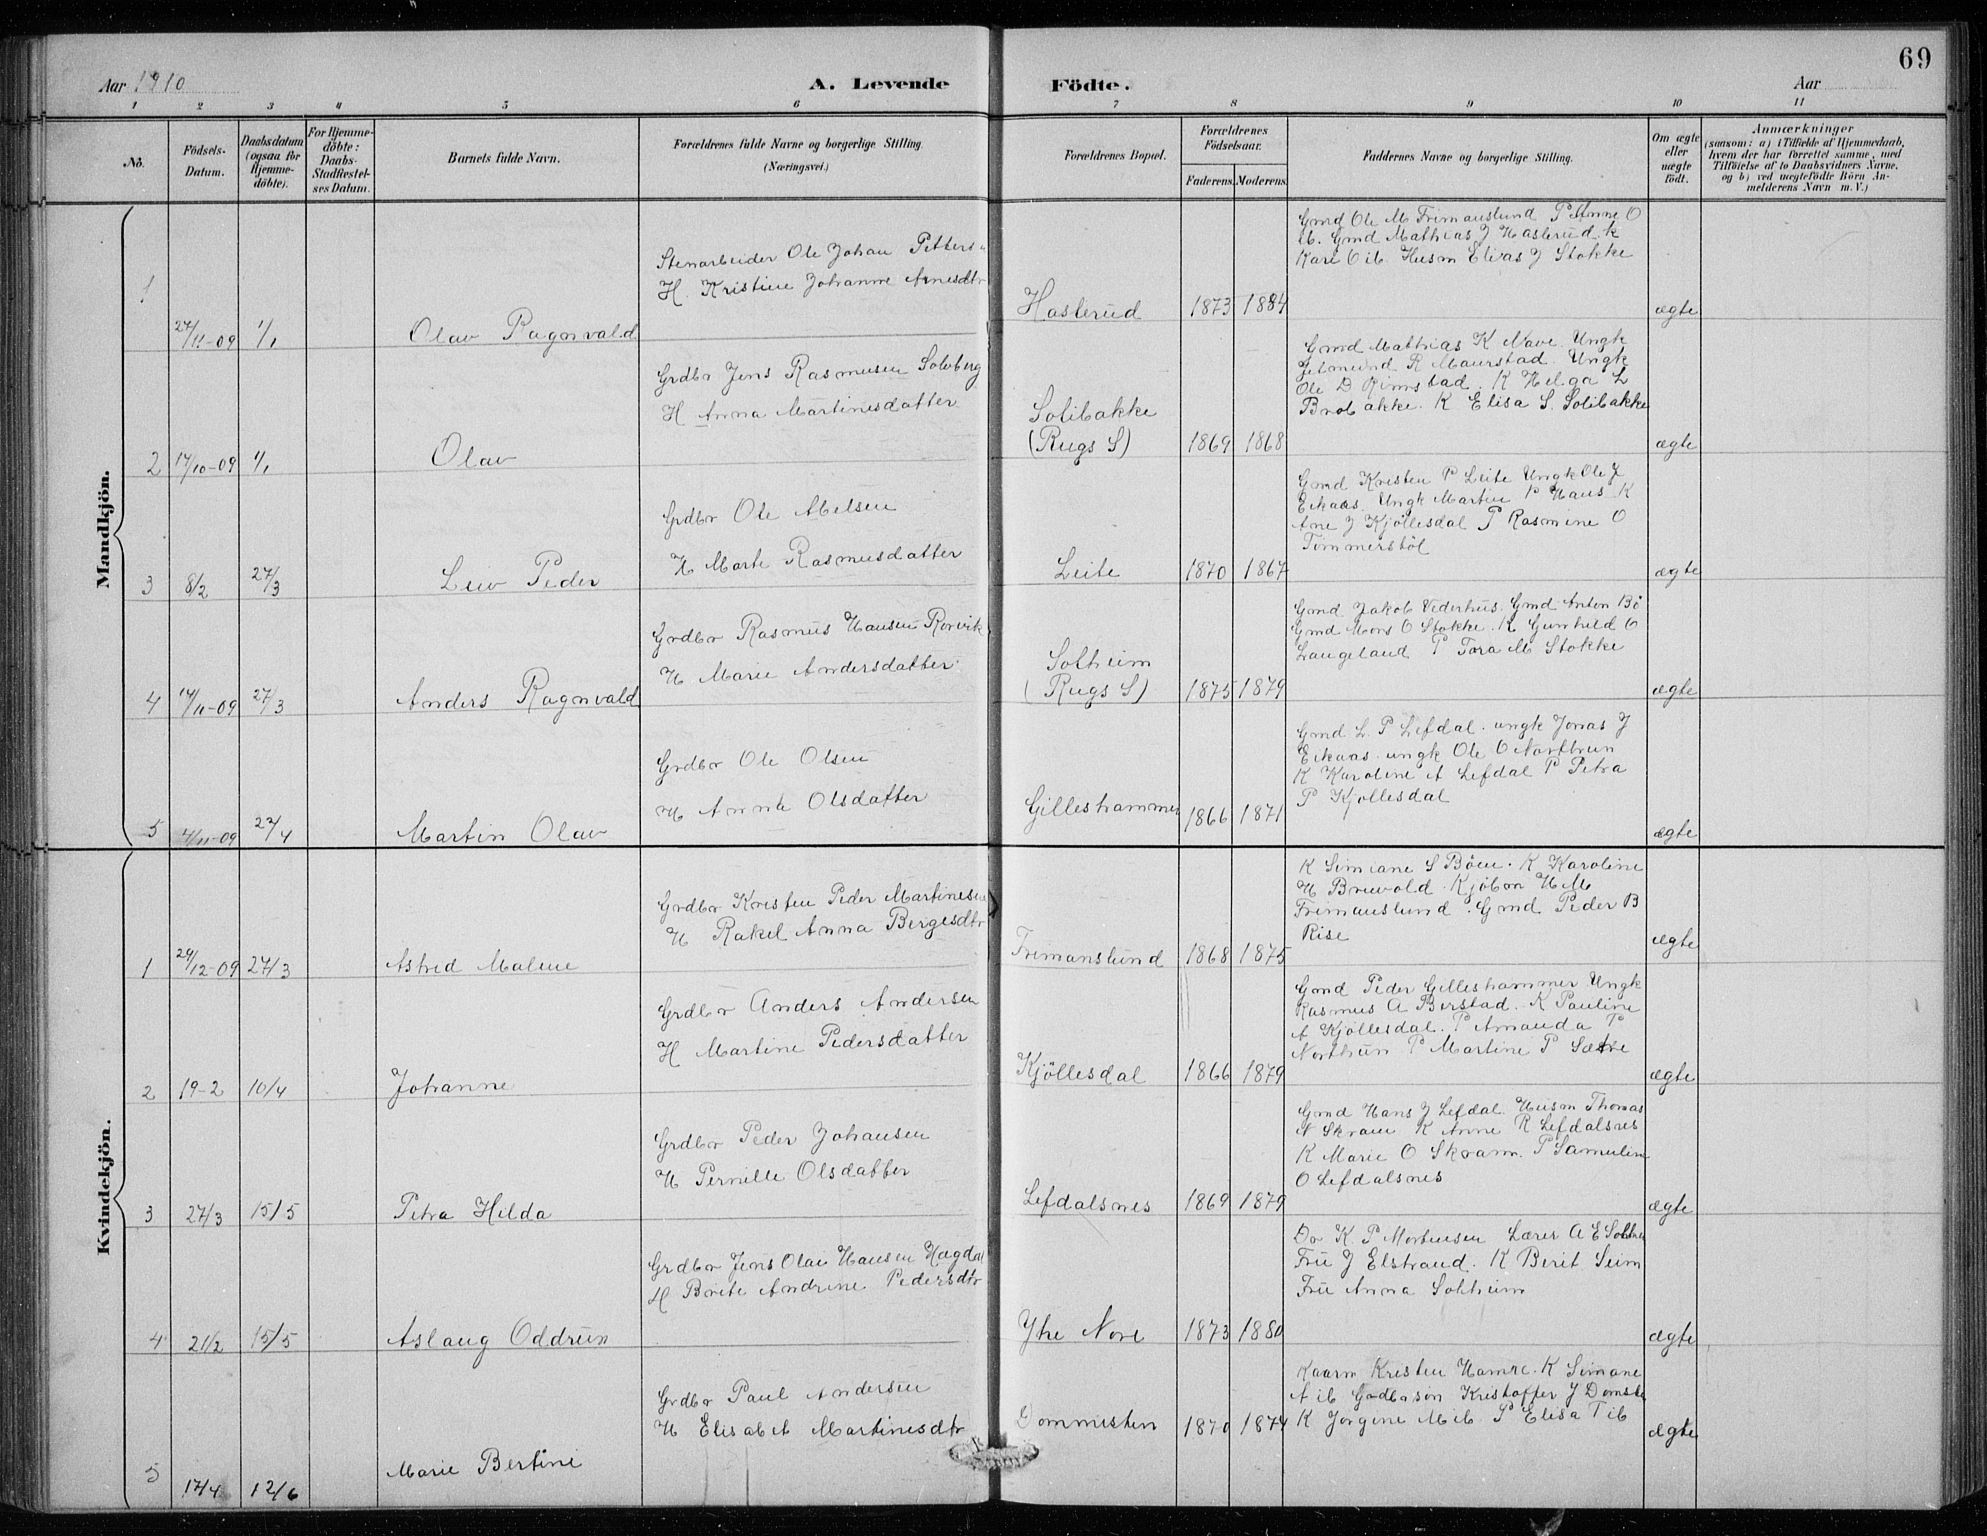 69
Aar 1910
A. Levende Födte.
Aar
1 2 3 4 5 6 7 8 9 10 11
No.
Födsels-Datum.
Daabsdatum (ogsaa for Hjemme-döbte).
For Hjemme-döbte: Daabs-Stadfæstel-ses Datum.
Barnets fulde Navn.
Forældrenes fulde Navne og borgerlige Stilling. (Næringsvei.)
Forældrenes Bopæl.
Forældrenes Födselsaar.
Faderens. Moderens.
Faddernes Navne og borgerlige Stilling.
Om ægte eller uægte födt.
Anmærkninger
(saasom: a) i Tilfælde af Hjemmedaab,
hvem der har forrettet samme, med
Tilföielse af to Daabsvidners Navne,
og b) ved uægtefödte Börn An-
melderens Navn m. V.)
Mandkjön.
1 27/11-09 1/1 Olav Ragnvald
Stenarbeider Ole Johan Petters
H. Kristine Johanne Arnesdtr
Hasterud 1873 1884
Gmd Ole M Frimanslund P Anne O
ib. Gmd Mathias J Hasterud. K
Kari O ib. Husm Elias J Stokke
ægte
2 17/10-09 1/1 Olav
Grdbr Jens Rasmusen Solvberg
H Anna Martinesdatter
Solibakke
(Rugs S) 1869 1868
Gmd Mathias K Nave. Ungk
R Maurstad. Ungk
Ole D Rimstad. K Helga L
Brobakke. K Elisa S. Solibakke
ægte
3 8/2 27/3 Leiv Peder
Grdbr Ole Abelsen
H Marte Rasmusdatter
Leite 1870 1867
Gmd Kristen P Leite Ungk Ole J
Eikaas. Ungk Martin P Haus K
Ane J Kjöllesdal P Rasmine O
Timmerstöl
ægte
4 14/11-09 27/3 Anders Ragnvald
Grdbr Rasmus Hansen Rorvik
H Marie Andersdatter
Solheim
(Rugs S) 1875 1879
Gmd Jakob Vederhus. Gmd Anton Bö
Gmd Mons O Stokke. K Gunhild O
Langeland P Tora M Stokke
ægte
5 4/11-09 22/4 Martin Olav
Grdbr Ole Olsen
H Anna Olsdatter
Gilleshammer 1866 1871
Gmd L. P Lefdal. ungk Jonas J
Eikaas. ungk Ole O Northun
K Karoline A Lefdal P Petra
P Kjøllesdal
ægte
Kvindekjön.
1 29/12-09 27/3 Astrid Malene
Grdbr Kristen Peder Martinesen
H Rakel Anna Bergesdtr
Frimanslund 1868 1875
K Simiane S Böen. K Karoline
H Breivold. Kjöbm H M
Frimanslund. Gmd Peder B
Rise
ægte
2 19-2 10/4 Johanne
Grdbr Anders Andersen
H Martine Pedersdatter
Kjöllesdal 1866 1879
Gmd Peder Gilleshammer Ungk
Rasmus A Berstad. K Pauline
A Kjöllesdal. P Amanda P
Northun P Martine P Sætre
ægte
3 27/3 15/5 Petra Hilda
Grdbr Peder Johansen
H Pernille Olsdatter
Lefdalsnes 1869 1879
Gmd Hans J Lefdal. Husm Thomas
N Skram K Anne R Lefdalsnes
K Marie O Skram. P Samuline
O Lefdalsnes
ægte
4 21/2 15/5 Aslaug Oddrun
Grdbr Jens Olai Hansen Hagda
H Brite Andrine Pedersdtr
Ytre Nore 1873 1880
Dr K P Mortensen Lærer A E Solheim
Fru J Elstrand. K Berit Seim
Fru Anna Solheim
ægte
5 17/4 12/6 Marie Bertine
Grdbr Paul Andersen
H Elisabet Martinesdtr
Dommesten 1870 1874
Kaarm Kristen Hamre. K Simane
A ib Grdbrsøn Kristoffer J Domste
K Jorgine M ib P Elisa T ib
ægte